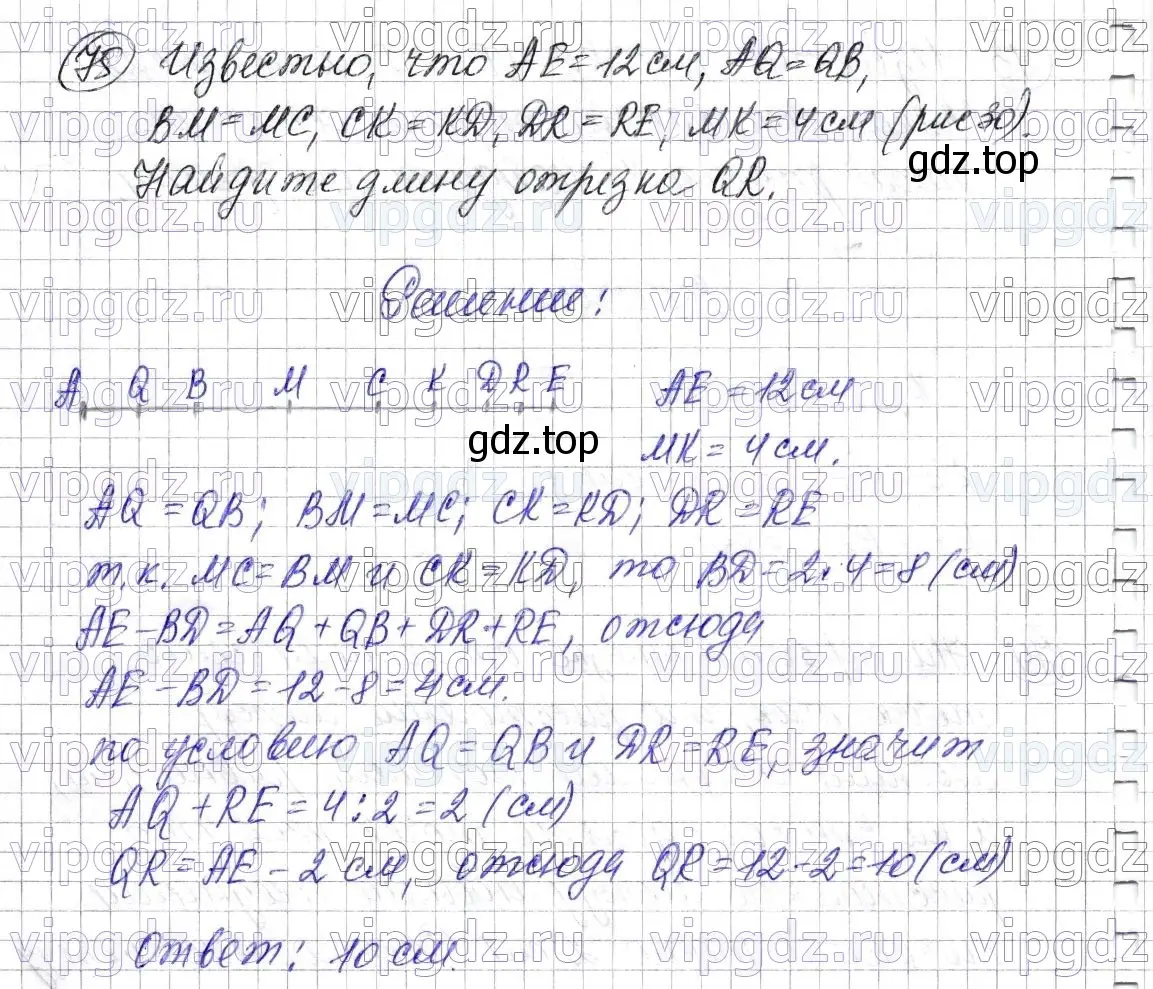 75 Известно, что AE = 12 см, AQ = QB,
BM = MC, CK = KD, DR = RE, MK = 4 см (рис 30).
gdz.top
Найдите длину отрезка QR.
Решение:
A Q B M C K D R E
AE = 12 см
gdz.top
MK = 4 см.
AQ = QB; BM = MC; CK = KD; DR = RE
т.к. MC = BM и CK = KD, то BD = 2 · 4 = 8 (см)
AE - BD = AQ + QB + DR + RE, отсюда
AE - BD = 12 - 8 = 4 см.
по условию AQ = QB и DR = RE, значит
AQ + RE = 4 : 2 = 2 (см)
QR = AE - 2 см, отсюда QR = 12 - 2 = 10 (см)
Ответ: 10 см.
vipgdz.ru